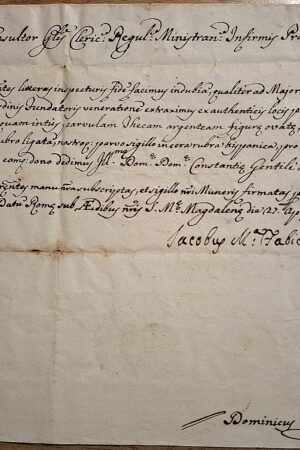 Consultor Gñlis Cleric.ᵐ Regul.ᵐ Ministran.ᵐ Infirmis
litteras inspecturis fidē facimus indubiā, qualiter ad Major
Fundatoris venerationē extraximus ex authenticis locis
parvulam Thecam argenteam figurę ovatę
rubra ligatā, nostroq; parvo sigillo in cera rubra hispanica, pro
dono dedimus Ill.ᵐᵒ Dom.ⁿᵒ Dom.ⁿᵒ Constantio Gentile
manu ñra subscriptas, et sigillo ñri Muneris firmatas
datū Romę sub Ædibus ñris S. Mę Magdalenę die 27
Jacobus M.ᵃ
Dominicus